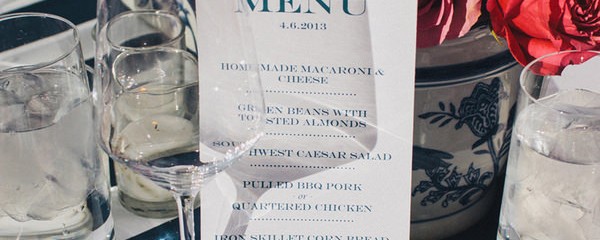 MENU
4.6.2013
HOMEMADE MACARONI &
CHEESE
GREEN BEANS WITH
TOASTED ALMONDS
SOUTHWEST CAESAR SALAD
PULLED BBQ PORK
or
QUARTERED CHICKEN
IRON SKILLET CORN BREAD